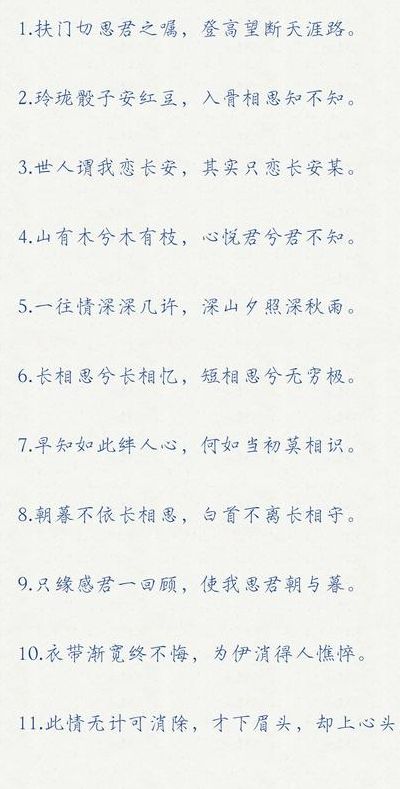 1.扶门切思君之嘱，登高望断天涯路。
2.玲珑骰子安红豆，入骨相思知不知。
3.世人谓我恋长安，其实只恋长安某。
4.山有木兮木有枝，心悦君兮君不知。
5.一往情深深几许，深山夕照深秋雨。
6.长相思兮长相忆，短相思兮无穷极。
7.早知如此绊人心，何如当初莫相识。
8.朝暮不依长相思，白首不离长相守。
9.只缘感君一回顾，使我思君朝与暮。
10.衣带渐宽终不悔，为伊消得人憔悴。
11.此情无计可消除，才下眉头，却上心头